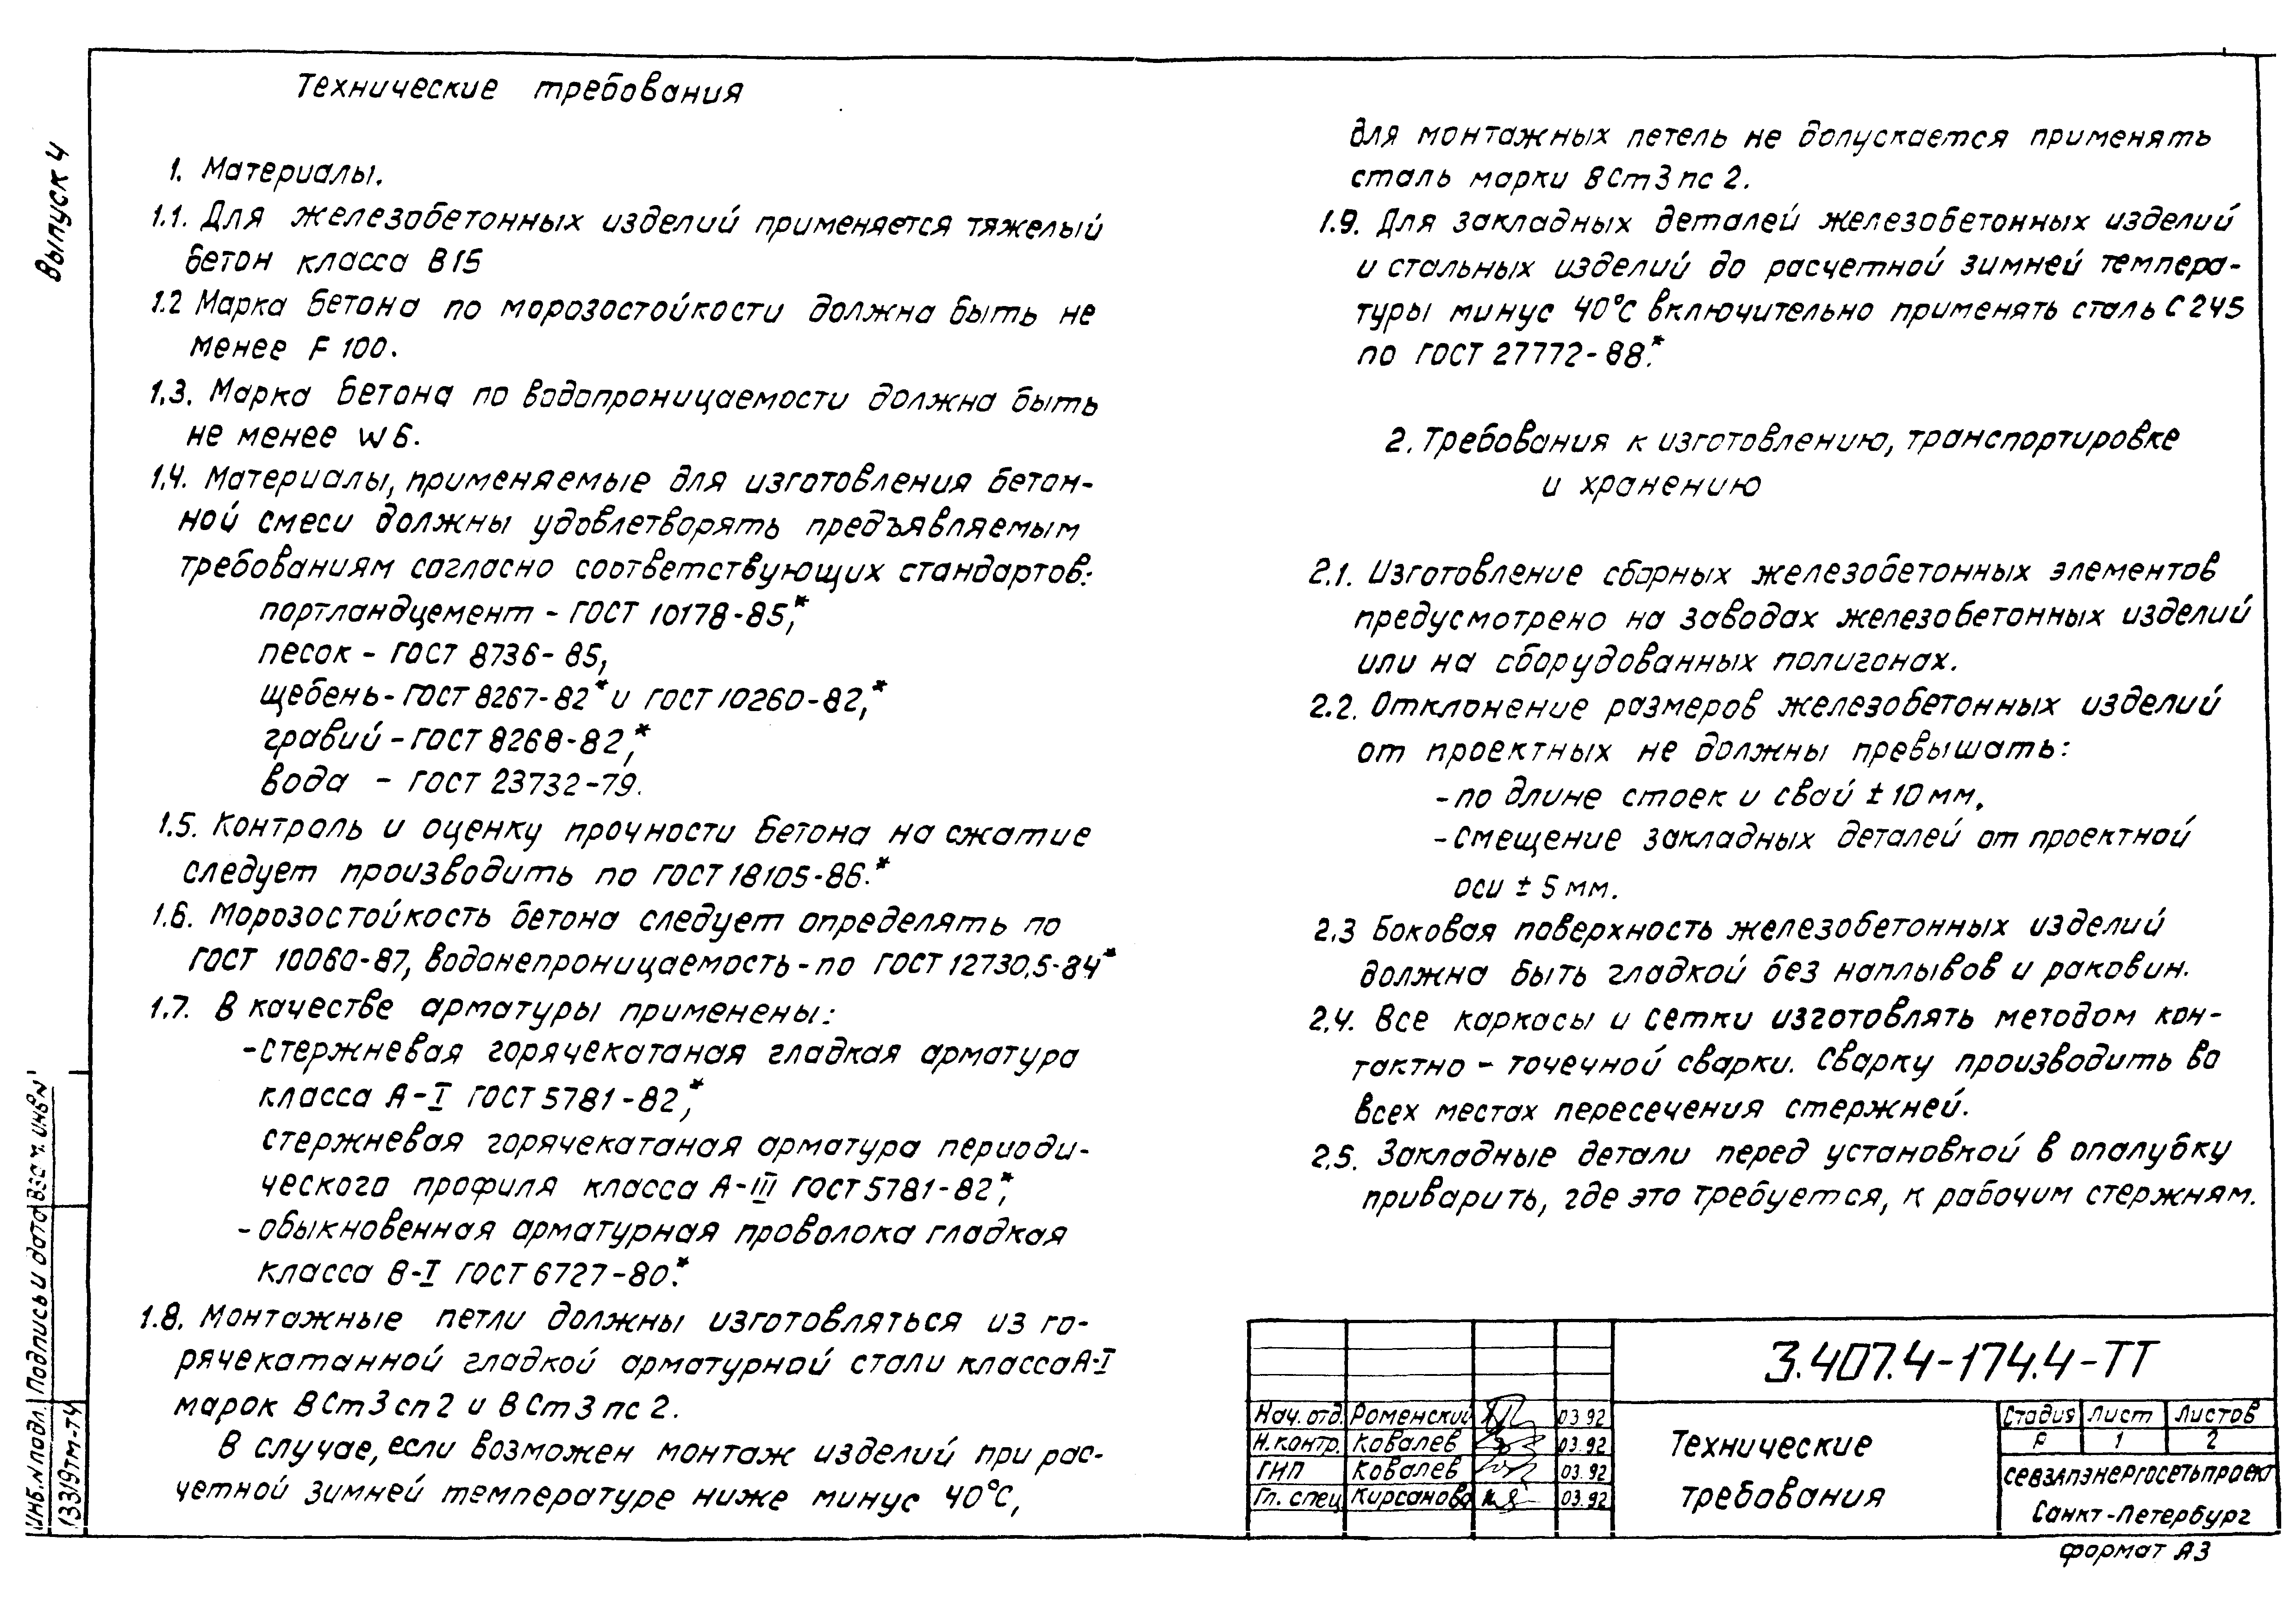 Выпуск 4
Технические требования
1. Материалы.
1.1. Для железобетонных изделий применяется тяжелый
бетон класса В15
1.2 Марка бетона по морозостойкости должна быть не
менее F 100.
1.3. Марка бетона по водопроницаемости должна быть
не менее W6.
1.4. Материалы, применяемые для изготовления бетон-
ной смеси должны удовлетворять предъявляемым
требованиям согласно соответствующих стандартов:
портландцемент - ГОСТ 10178-85,*
песок - ГОСТ 8736-85,
щебень - ГОСТ 8267-82* и ГОСТ 10260-82,*
гравий - ГОСТ 8268-82,*
вода - ГОСТ 23732-79.
1.5. Контроль и оценку прочности бетона на сжатие
следует производить по ГОСТ 18105-86.*
1.6. Морозостойкость бетона следует определять по
ГОСТ 10060-87, водонепроницаемость - по ГОСТ 12730.5-84*
1.7. В качестве арматуры применены:
- стержневая горячекатаная гладкая арматура
класса А-I ГОСТ 5781-82,*
стержневая горячекатаная арматура периоди-
ческого профиля класса А-III ГОСТ 5781-82,*
- обыкновенная арматурная проволока гладкая
класса В-I ГОСТ 6727-80.*
1.8. Монтажные петли должны изготовляться из го-
рячекатанной гладкой арматурной стали класса А-I
марок ВСт3сп2 и ВСт3пс2.
В случае, если возможен монтаж изделий при рас-
четной зимней температуре ниже минус 40°С,
для монтажных петель не допускается применять
сталь марки ВСт3пс2.
1.9. Для закладных деталей железобетонных изделий
и стальных изделий до расчетной зимней темпера-
туры минус 40°С включительно применять сталь С245
по ГОСТ 27772-88.*
2. Требования к изготовлению, транспортировке
и хранению
2.1. Изготовление сборных железобетонных элементов
предусмотрено на заводах железобетонных изделий
или на сборудованных полигонах.
2.2. Отклонение размеров железобетонных изделий
от проектных не должны превышать:
- по длине стоек и свай ± 10 мм,
- смещение закладных деталей от проектной
оси ± 5 мм.
2.3 Боковая поверхность железобетонных изделий
должна быть гладкой без наплывов и раковин.
2.4. Все каркасы и сетки изготовлять методом кон-
тактно - точечной сварки. Сварку производить во
всех местах пересечения стержней.
2.5. Закладные детали перед установкой в опалубку
приварить, где это требуется, к рабочим стержням.
3.407.4-174.4-ТТ
Нач. отд. Роменский 03.92
Н. контр. Ковалев 03.92
ГИП Ковалев 03.92
Гл. спец Кирсанова 03.92
Технические
требования
Стадия Лист Листов
Р 1 2
СЕВЗАПЭНЕРГОСЕТЬПРОЕКТ
Санкт-Петербург
формат А3
Инв. N подл. Подпись и дата Взам. инв N
13319тм-т4